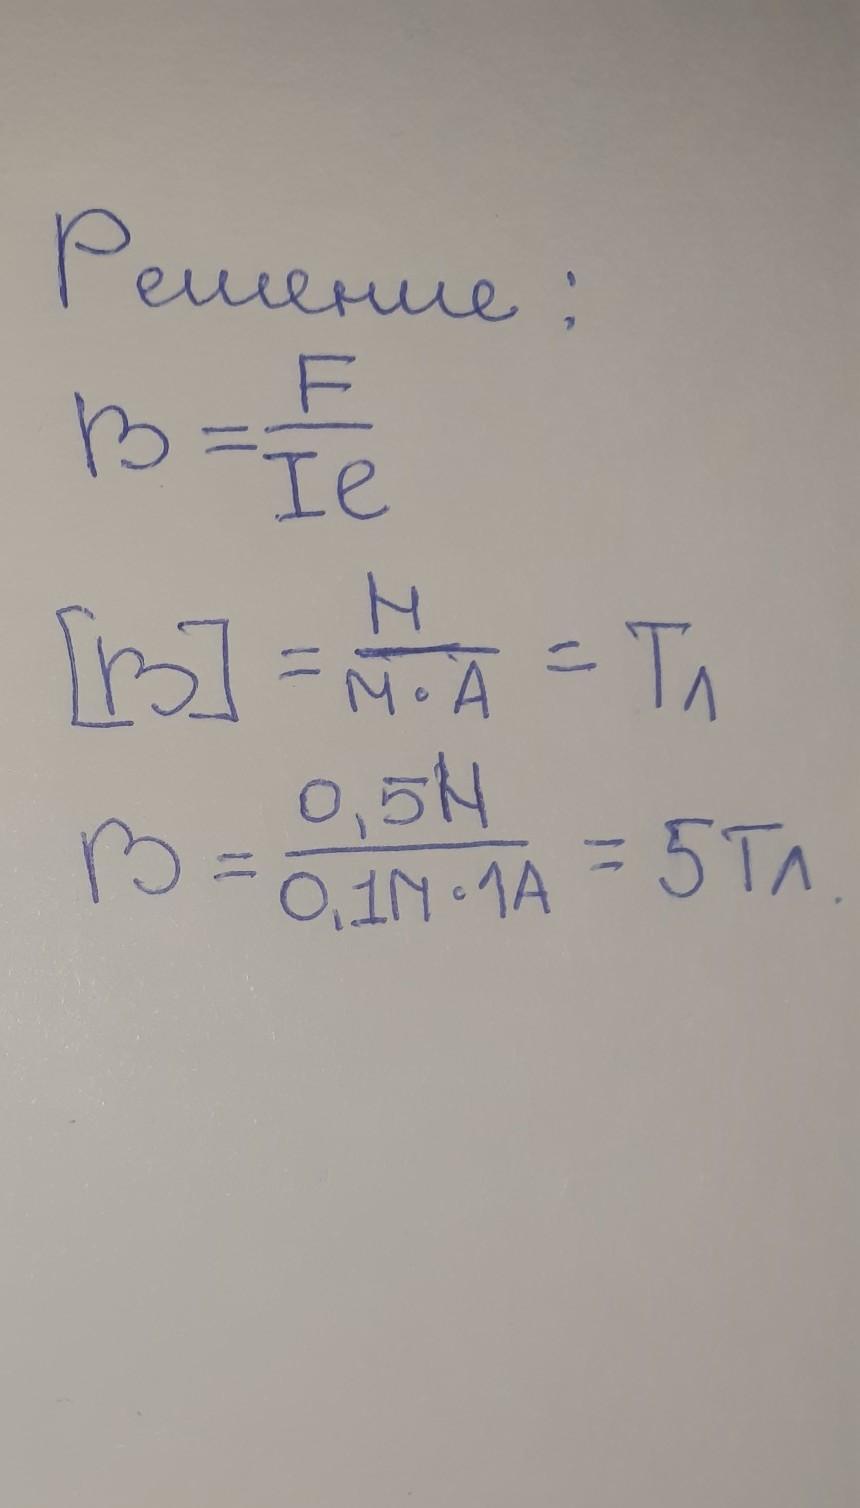 Решение:
B = F / Il
[B] = Н / м·А = Тл
B = 0,5Н / 0,1м·1А = 5Тл.